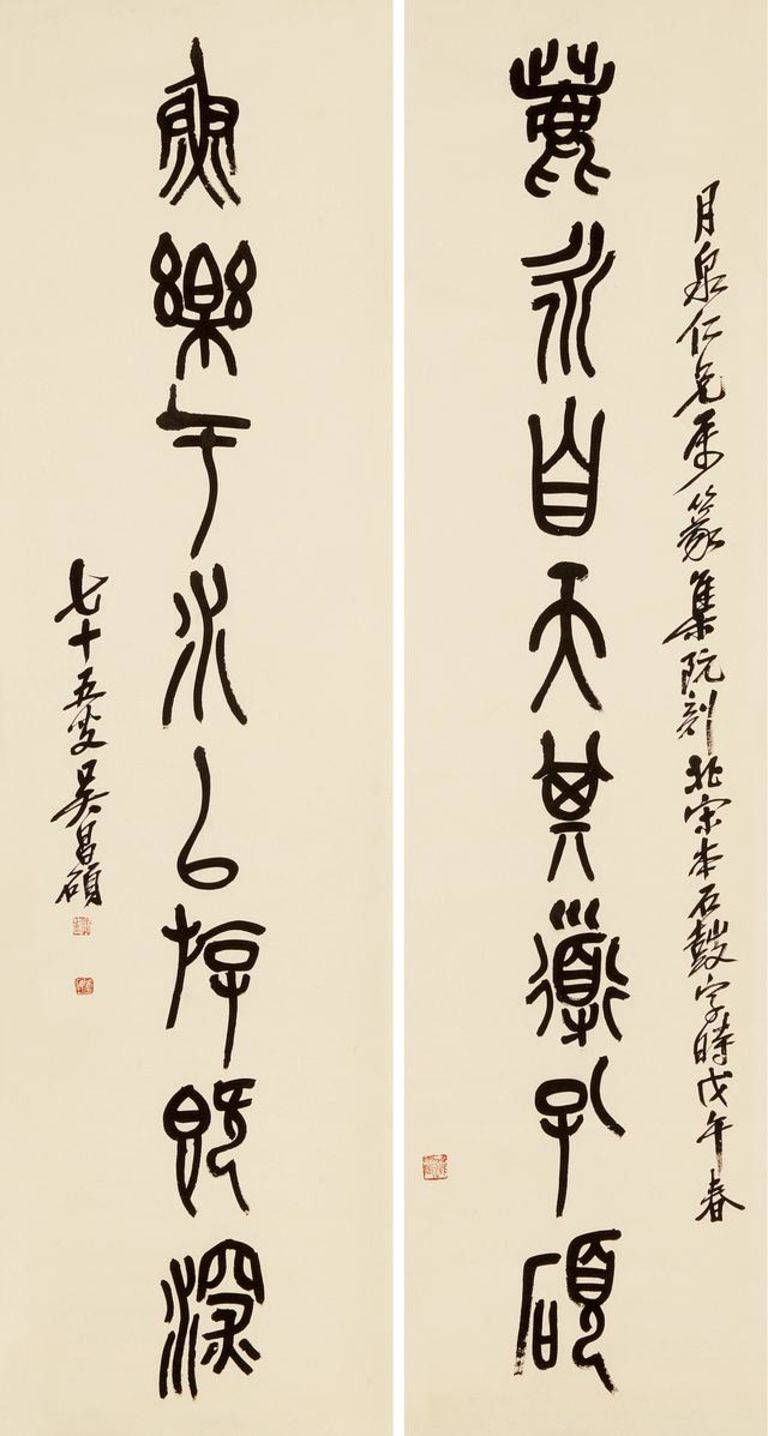 月泉仁兄屬篆集阮刻北宋本石鼓字時戊午春
鹿永自天其道孔碩
魚樂于水以斿既深
七十五叟吳昌碩